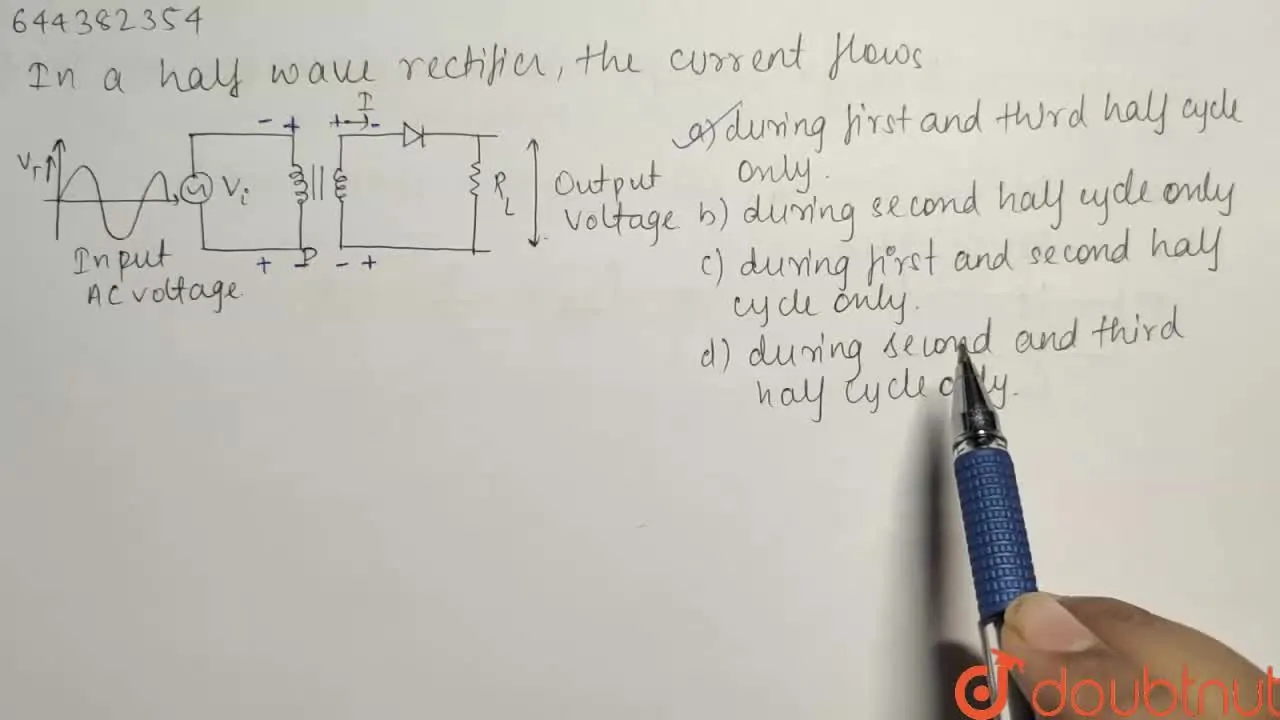 644382354
In a half wave rectifier, the current flows
I
- + + -
a) during first and third half cycle
only.
V
Vi
RL
Output
Voltage
b) during second half cycle only
Input
AC voltage
+ P - +
c) during first and second half
cycle only.
d) during second and third
half cycle only.
doubtnut